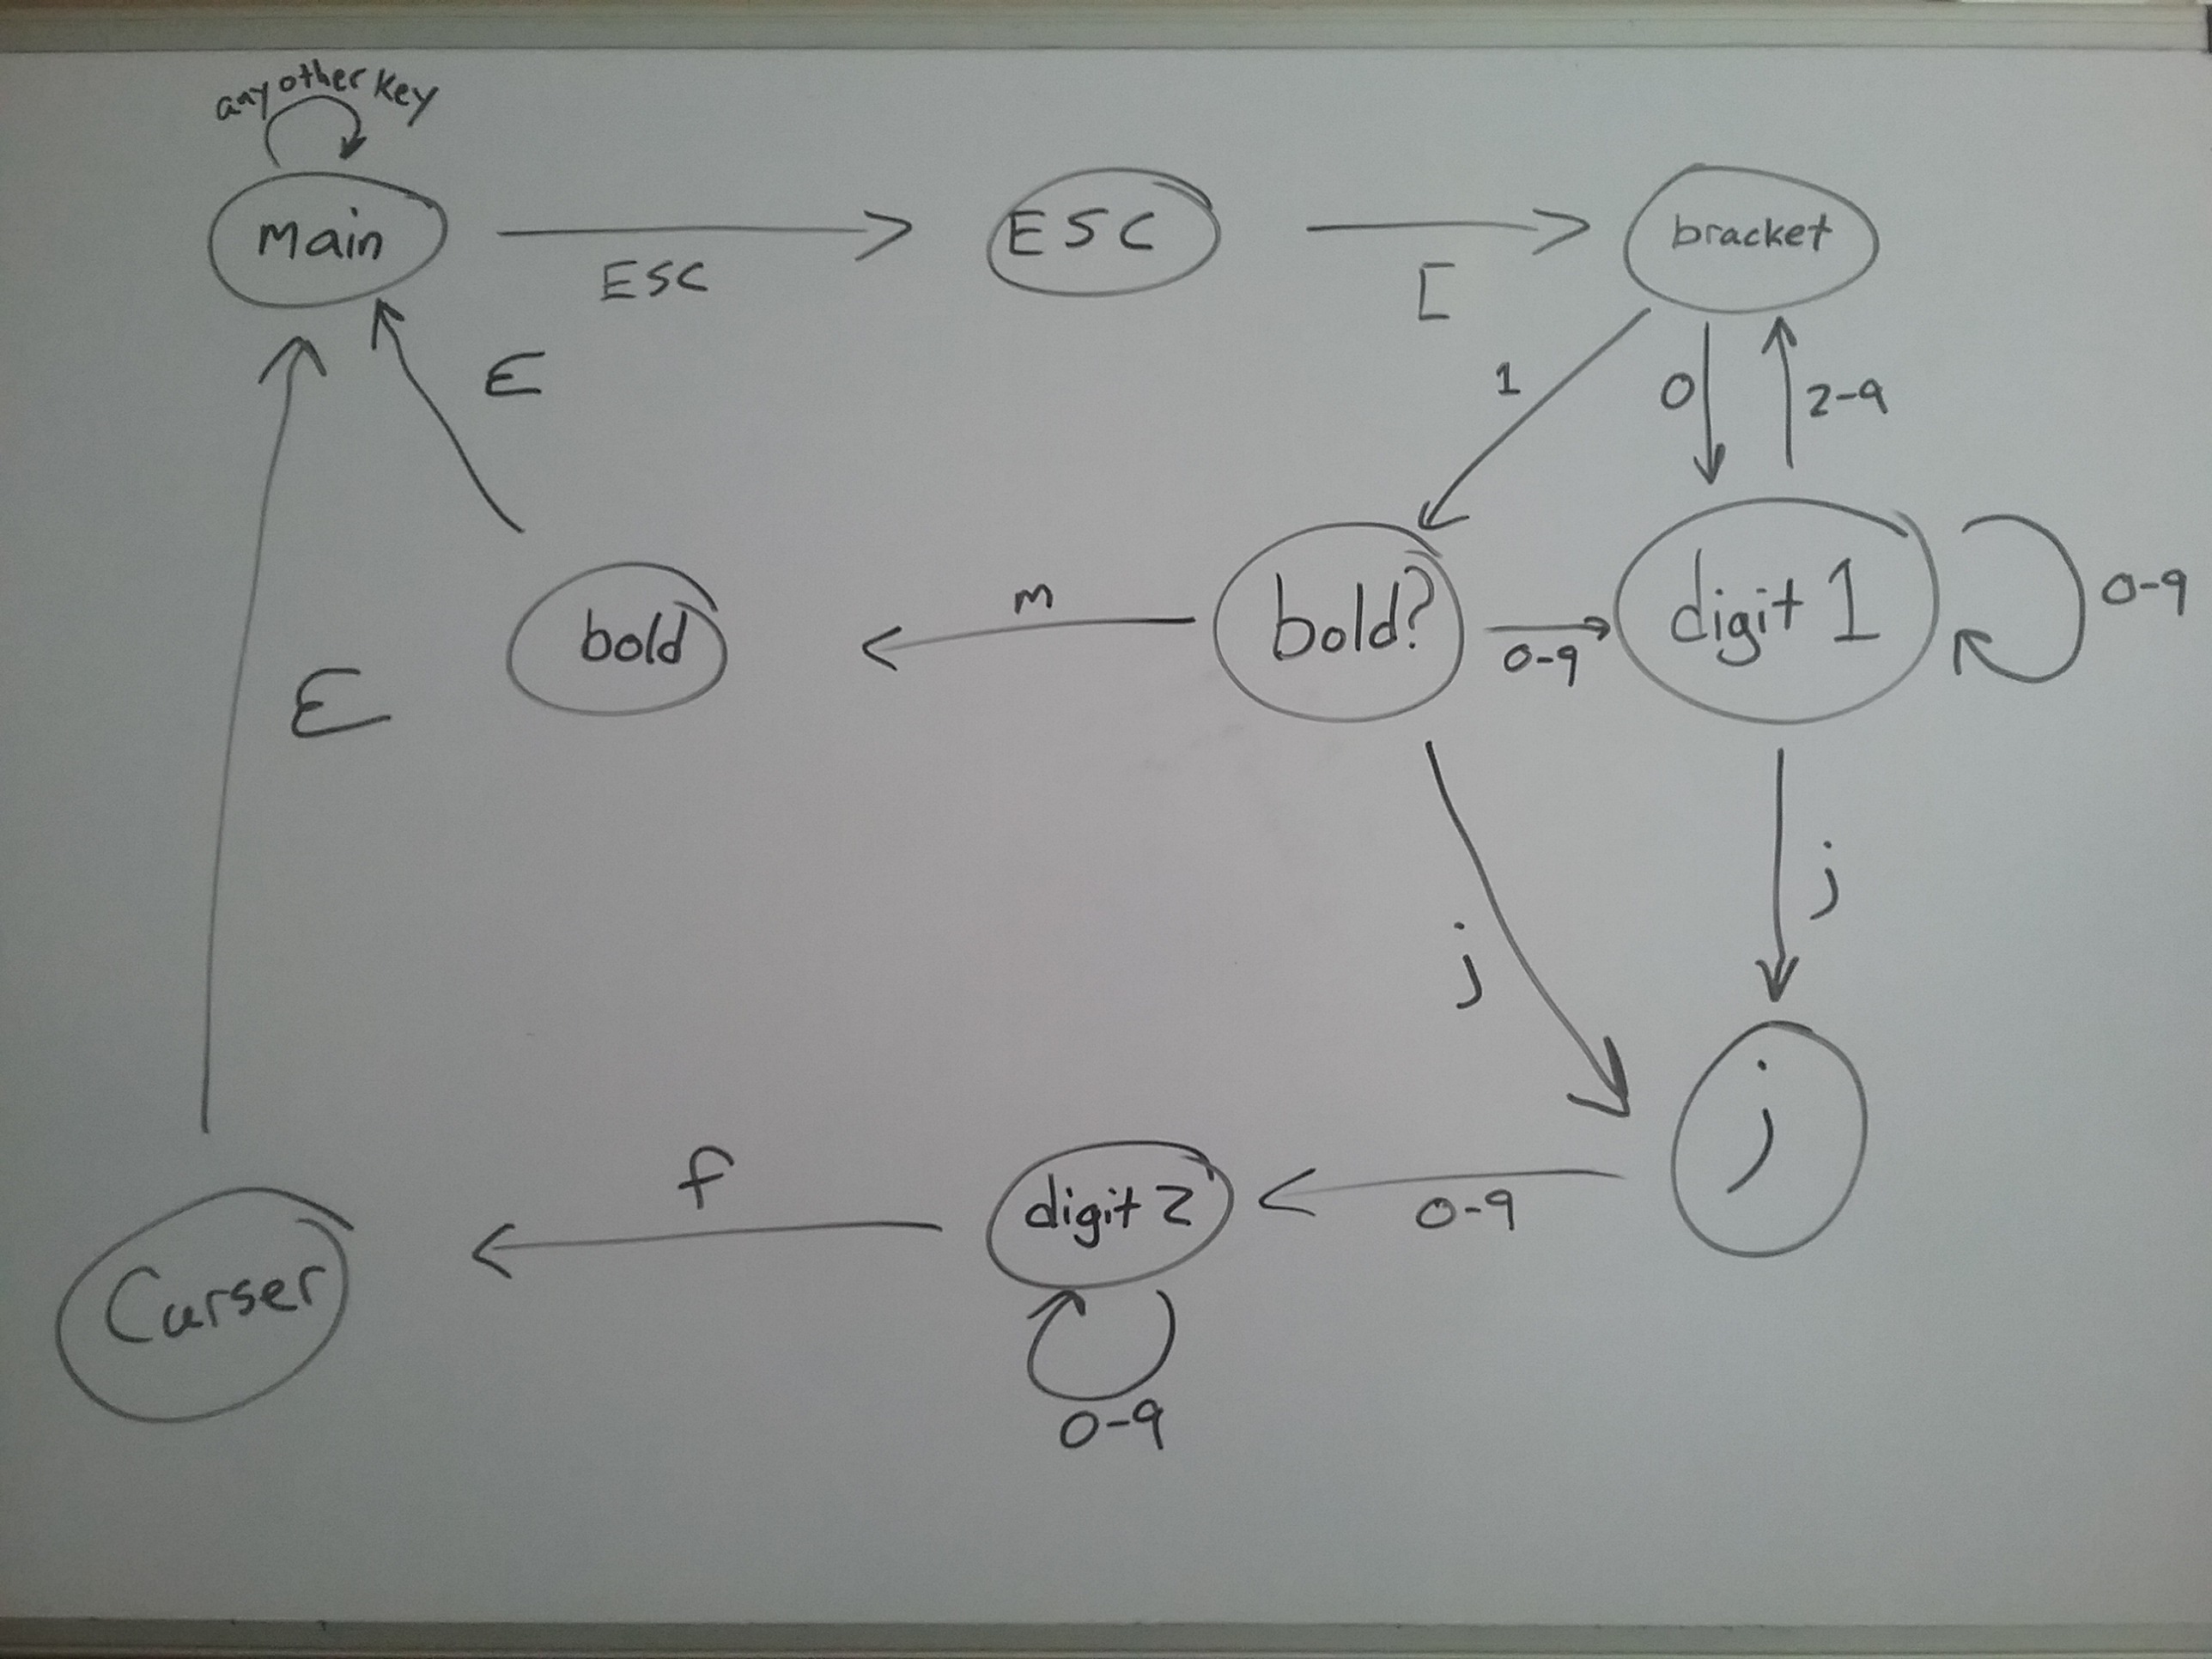 any other key
main
ESC
ESC
[
bracket
ε
1
0
2-9
bold
m
bold?
0-9
digit 1
0-9
ε
j
j
j
f
digit 2
0-9
Curser
0-9